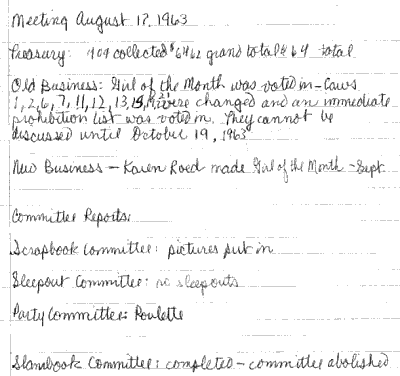 Meeting August 17, 1963
Treasury: 404 collected $6462 grand total total
Old Business: Girl of the Month was voted in - Laws
1, 2, 6, 7, 11, 12, 13, were changed and an immediate
prohibition list was voted in. They cannot be
discussed until October 19, 1963
New Business - Karen Roed made Girl of the Month - Sept
Committee Reports:
Scrapbook Committee: pictures put in
Sleepout Committee: no sleepouts
Party Committee: Roulette
Slambook Committee: completed - committee abolished